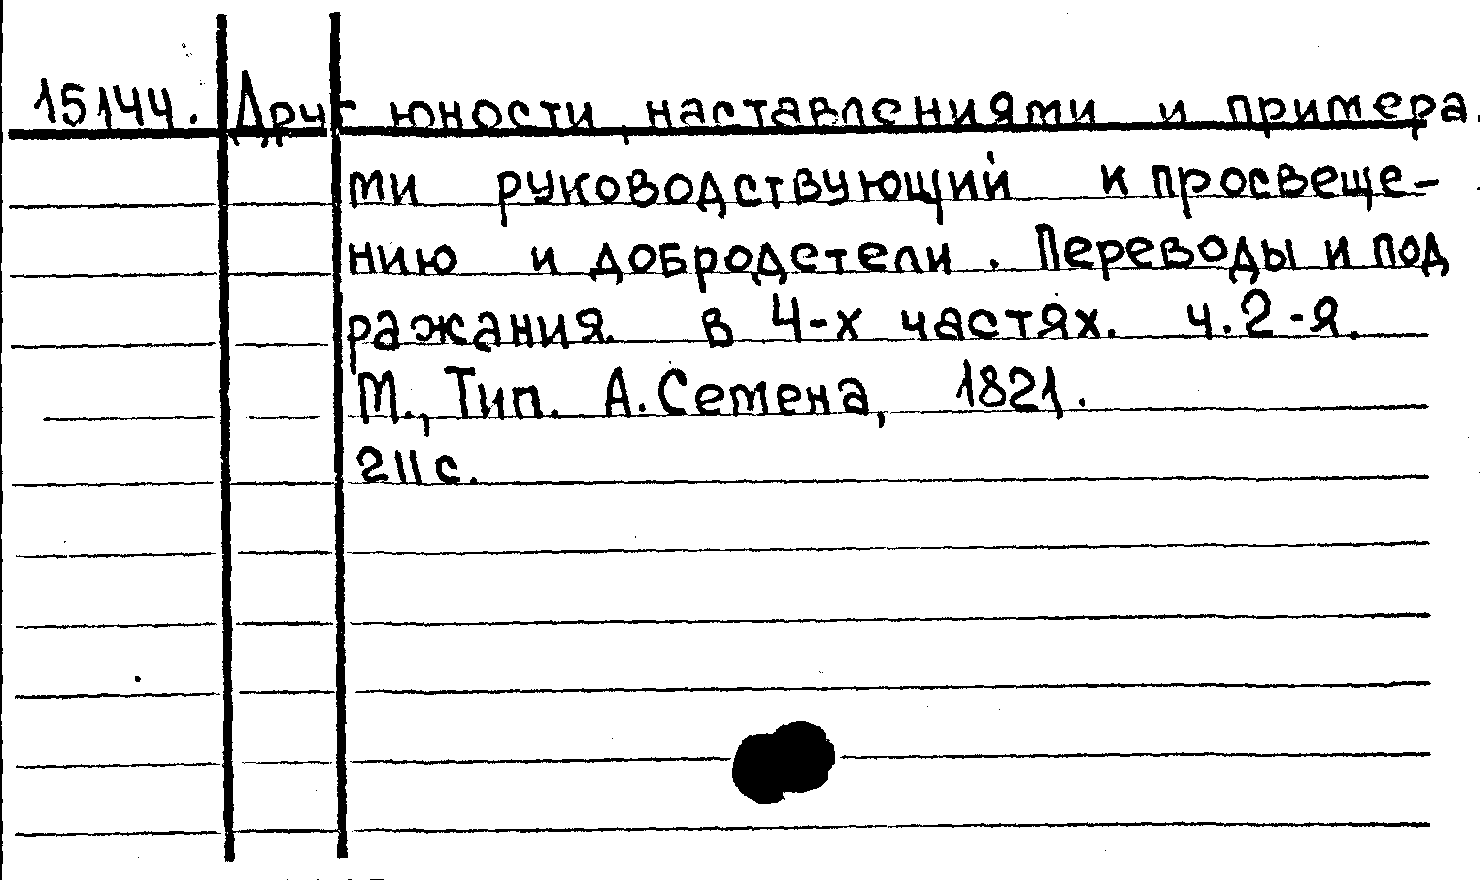 15144. Друг юности, наставлениями и примера.
ми руководствующий к просвеще-
нию и добродетели. Переводы и под
ражания. в 4-х частях. ч.2-я.
М., Тип. А. Семена, 1821.
211 с.